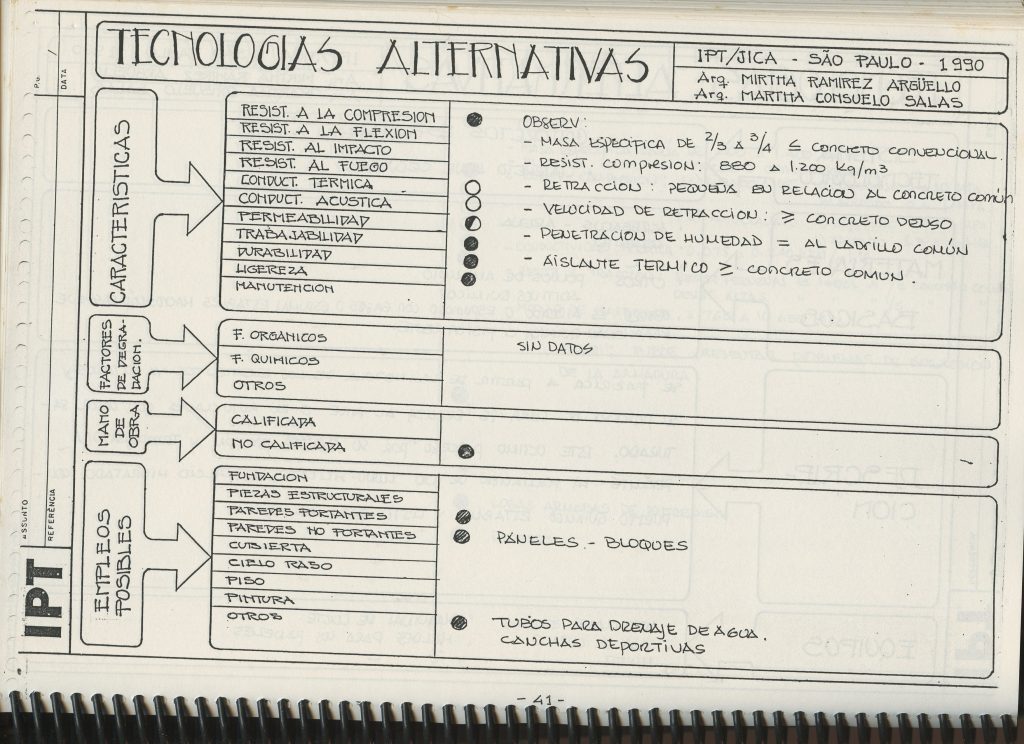 TECNOLOGIAS ALTERNATIVAS
IPT/JICA - SÃO PAULO - 1990
Arq. MIRTHA RAMIREZ ARGÜELLO
Arq. MARTHA CONSUELO SALAS
DATA
CARACTERISTICAS
RESIST. A LA COMPRESION
RESIST. A LA FLEXION
RESIST. AL IMPACTO
RESIST. AL FUEGO
CONDUCT. TERMICA
CONDUCT. ACUSTICA
PERMEABILIDAD
TRABAJABILIDAD
DURABILIDAD
LIGEREZA
MANUTENCION
OBSERV:
- MASA ESPECIFICA DE 2/3 A 3/4 ≤ CONCRETO CONVENCIONAL.
- RESIST. COMPRESION: 880 A 1.200 Kg/m³
- RETRACCION : PEQUEÑA EN RELACION AL CONCRETO COMÚN
- VELOCIDAD DE RETRACCION: ≥ CONCRETO DENSO
- PENETRACION DE HUMEDAD = AL LADRILLO COMÚN
- AISLANTE TERMICO ≥ CONCRETO COMUN
FACTORES
DE DEGRA-
DACION.
F. ORGANICOS
F. QUIMICOS
OTROS
SIN DATOS
MANO
DE
OBRA
CALIFICADA
NO CALIFICADA
EMPLEOS
POSIBLES
FUNDACION
PIEZAS ESTRUCTURALES
PAREDES PORTANTES
PAREDES NO PORTANTES
CUBIERTA
CIELO RASO
PISO
PINTURA
OTROS
PANELES.- BLOQUES
TUBOS PARA DRENAJE DE AGUA.
CANCHAS DEPORTIVAS
ASSUNTO
REFERÊNCIA
IPT
- 41 -